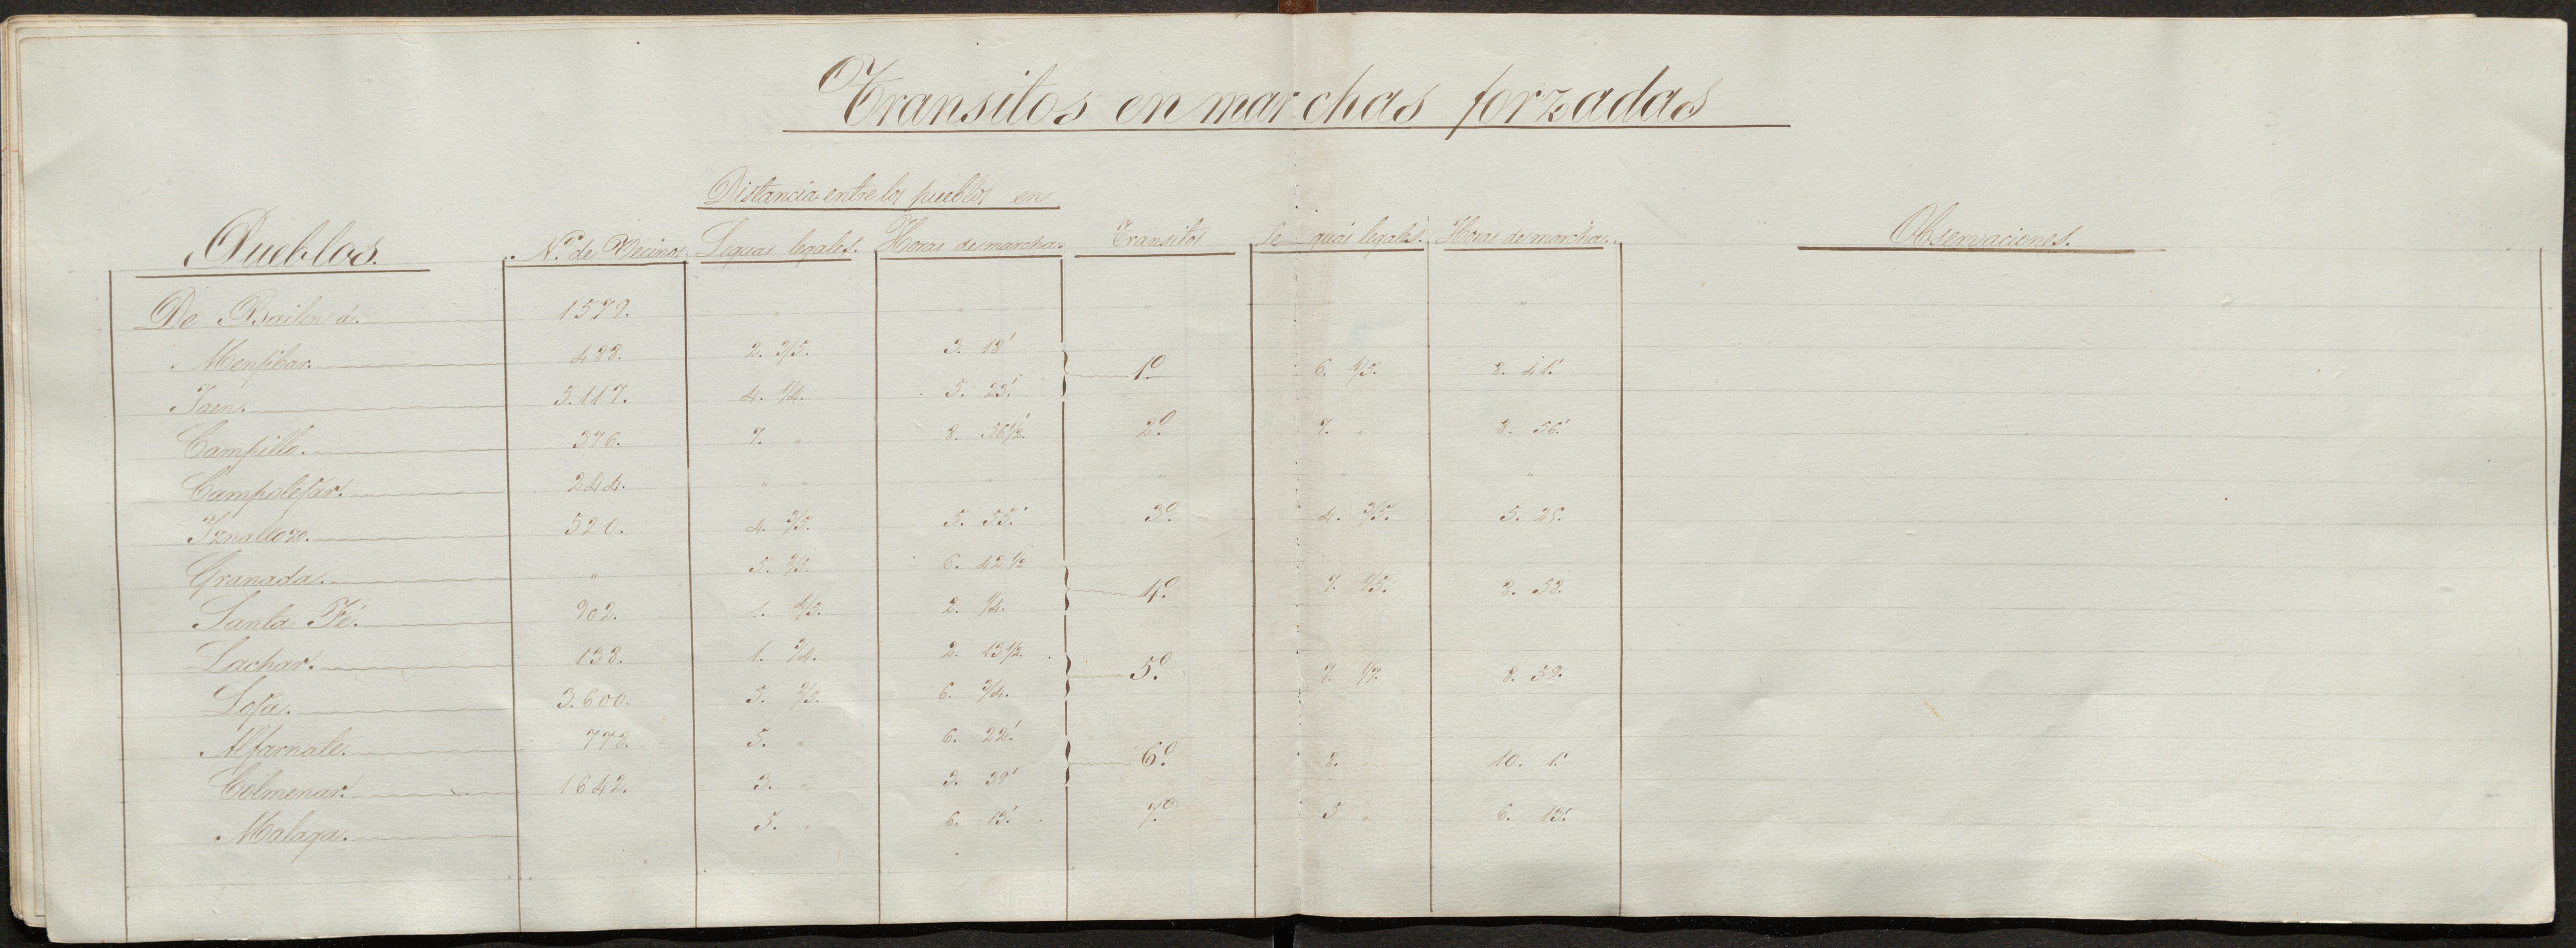 Transitos en marchas forzadas
Distancia entre los pueblos en
Pueblos. Nº de Vecinos. Leguas legales. Horas de marcha. Transitos Leguas legales. Horas de marcha. Observaciones.
De Bailen á. 1579. " " " " "
Menjibar. 488. 2. 3/5. 3. 18'
1º 6. 4/5. 8. 41'
Jaen. 5.117. 4. 1/4. 5. 23'
Campillo. 376. 7. " 8. 56 1/2' 2º 7. " 8. 56'
Campolejar. 244. " " " " " "
Iznalloze. 520. 4. 3/5. 5. 55' 3º 4. 3/5. 5. 25.
Granada. " 5. 6. 42 1/2
4º 7. 1/5. 8. 58.
Santa Fé. 902. 1. 4/5. 2. 1/4.
Lachar. 138. 1. 3/4. 2. 13 1/2
5º 7. 8. 59.
Loja. 3.600. 5. 6. 3/4.
Alfarnate. 778. 5. " 6. 22'
6º 8. " 10. 1'
Colmenar. 1642. 3. " 3. 39'
Malaga. 5. " 6. 13' 7º 5 " 6. 13'